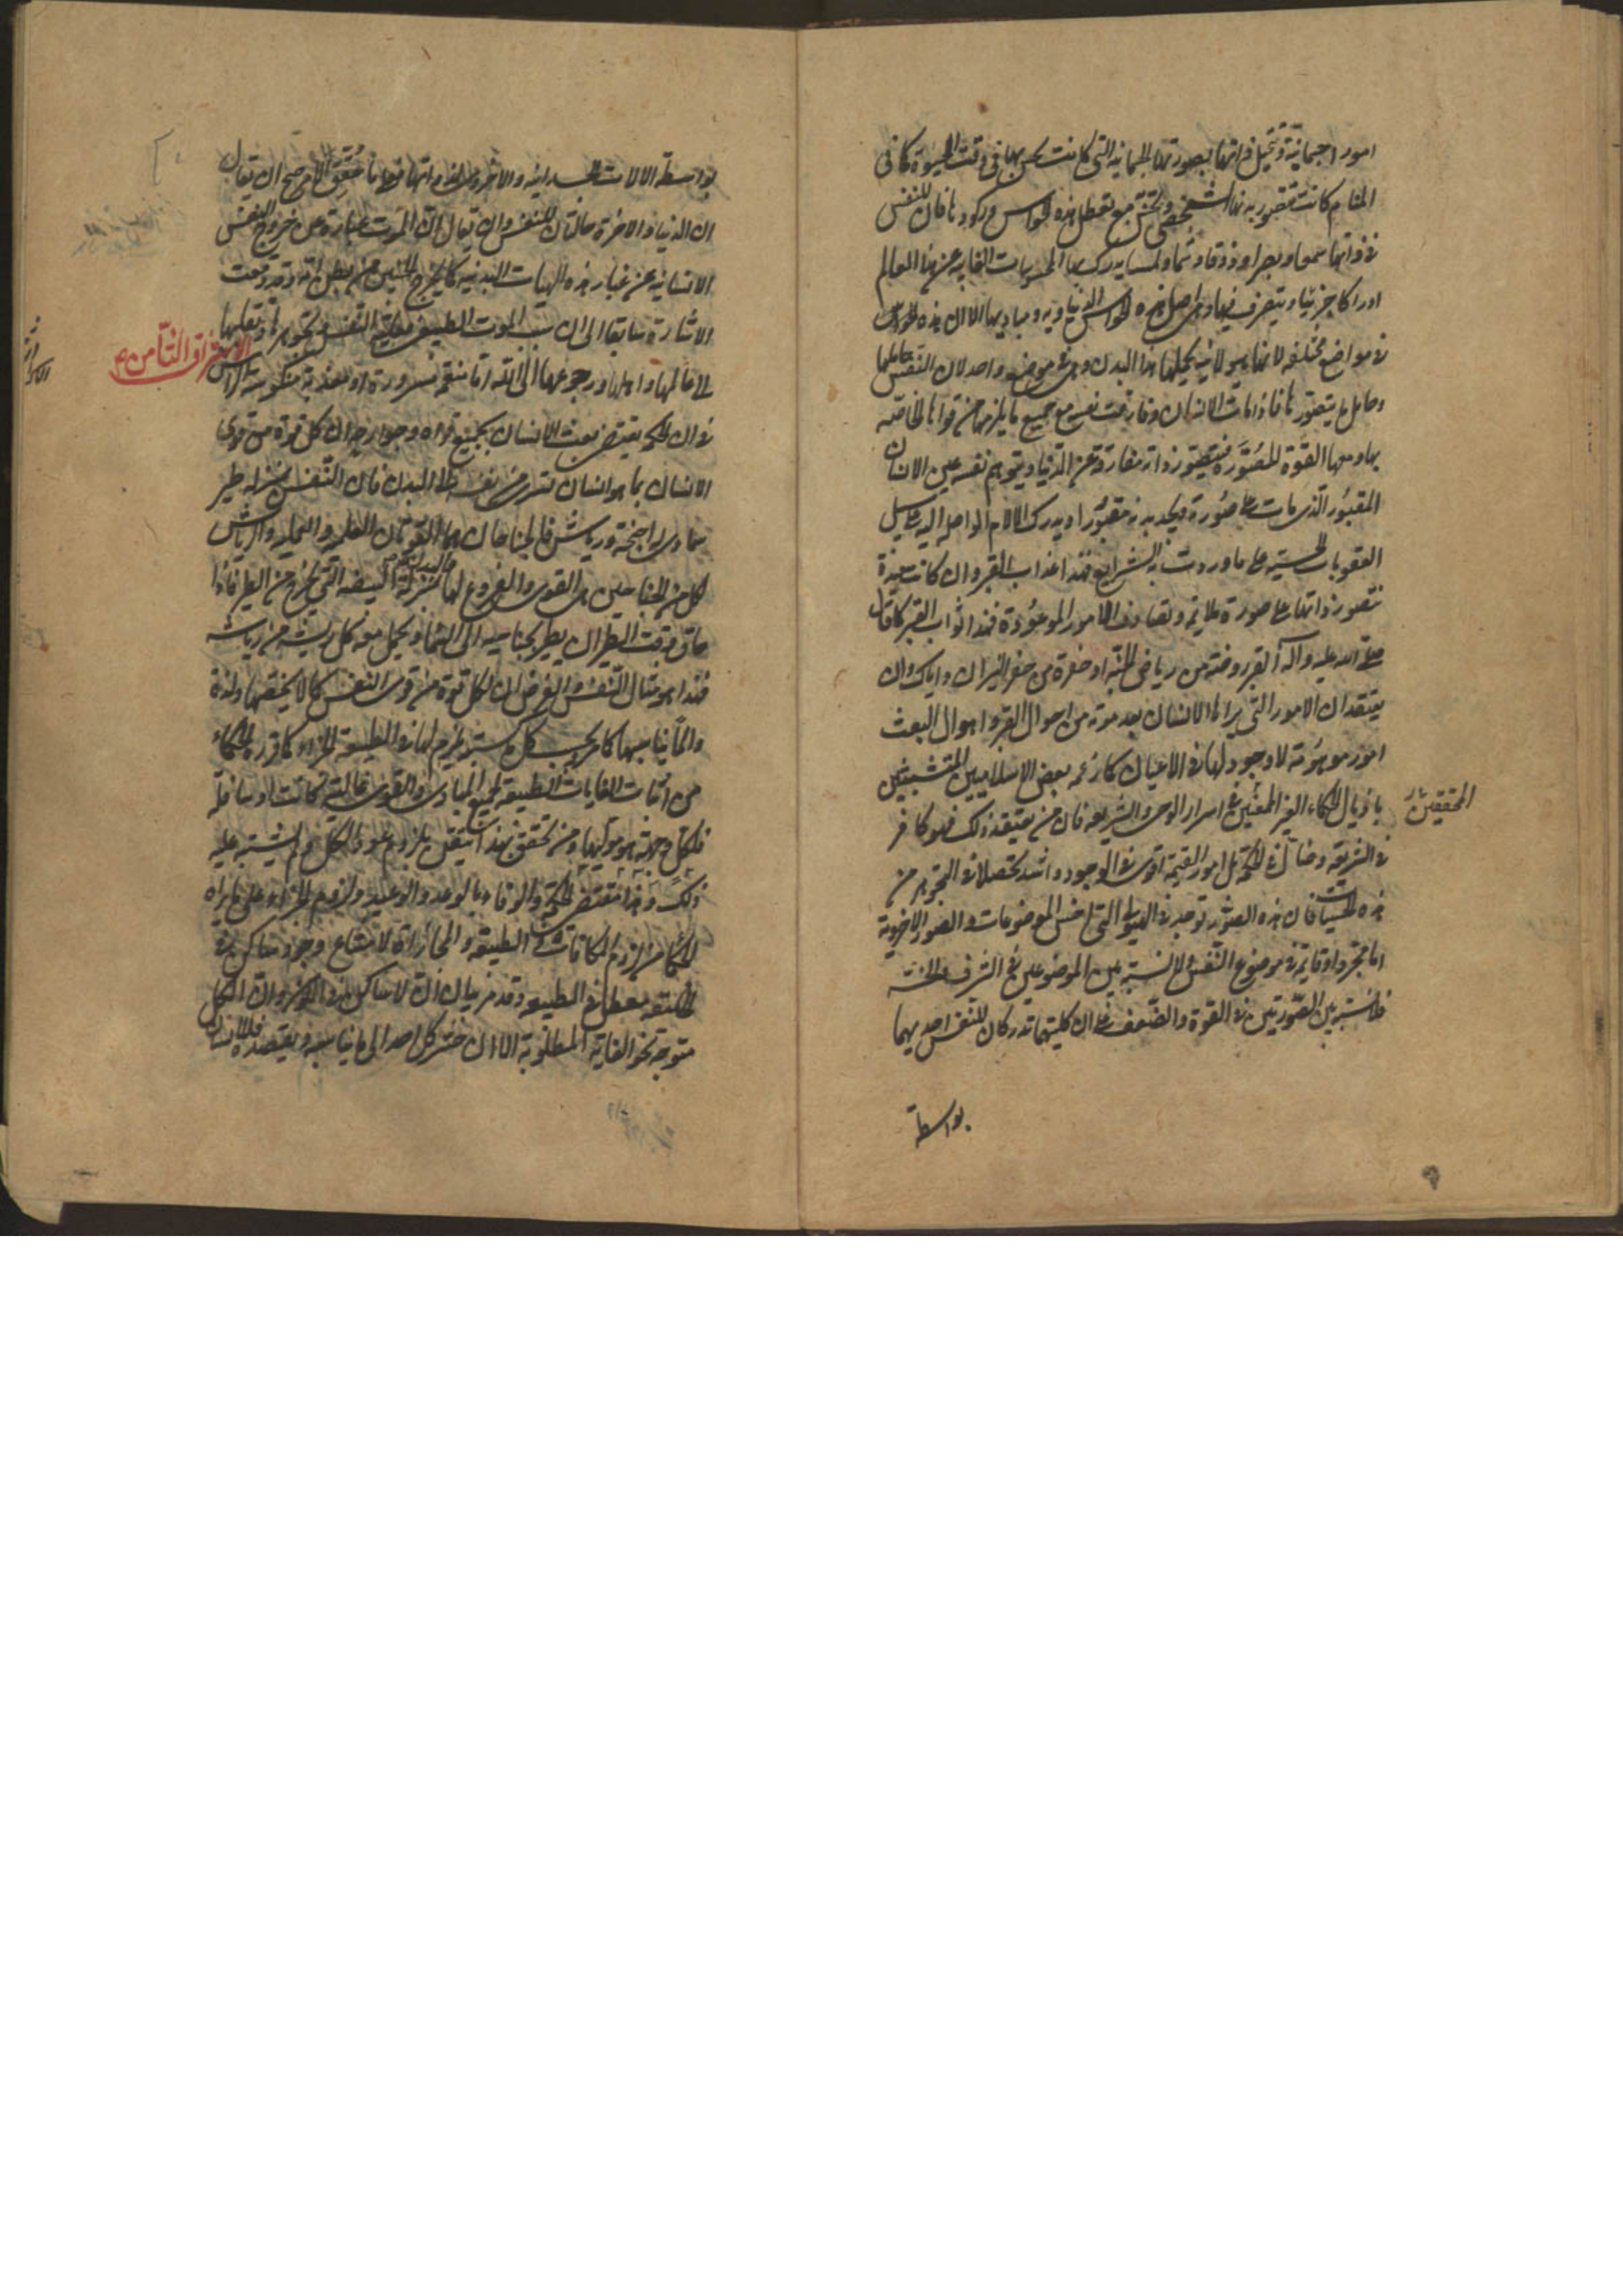 امورا جسمانية وتتخيل ذاتها بصورتها الجسمانية التي كانت تحس بها في وقت الحيوة كما في
المنام كانت تتصور بدنها الشخصي وتحس مع تعطل هذه الحواس وركودها فان للنفس
في ذاتها سمعا وبصرا وذوقا وشما ولمسا يدرك بها المحسوسات الغايبة عن هذا العالم
ادراكا جزئيا ويتصرف فيها وهي اصل هذه الحواس الدنياوية ومباديها الا ان هذه الحواس
في مواضع مختلفة لانها هيولانية يحملها هذا البدن وهي في موضع واحد لان النفس حاملها
وحامل ما يتصورها فاذا مات الانسان وفارقت نفسه مع جميع ما يلزمها من قواها الخاصة
بها ومعها القوة المصورة فيتصور ذاته مفارقة عن الدنيا ويتوهم نفسه عين الانسان
المقبور الذي مات على صورته ويجد بدنه مقبورا ويدرك الالام الواصلة اليه على سبيل
العقوبات الحسية على ما وردت به الشرايع فهذا عذاب القبر وان كانت سعيدة
تتصور ذاتها على صورة ملايمة وتصادف الامور الموعودة فهذا ثواب القبر كما قال
صلى الله عليه وآله القبر روضة من رياض الجنة او حفرة من حفر النيران واياك وان
يعتقد ان الامور التي يراها الانسان بعد موته من احوال القبر واهوال البعث
امور موهومة لا وجود لها في الاعيان كما زعمه بعض الاسلاميين المتشبثين
باذيال الحكماء الغير الممعنين في اسرار الوحي والشريعة فان من يعتقد ذلك فهو كافر
المحققين
في الشريعة وضال في الحكمة بل امور القيمة اقوى في الوجود واشد تحصلا في التجوهر من
هذه الحسيات فان هذه الصور توجد في الهيولى التي هي اخس الموضوعات والصور الاخروية
اما مجردة او قايمة في موضوع النفس ولا نسبة بين الموضوعين في الشرف والخسة
فلا نسبة بين الصورتين في القوة والضعف على ان كليتهما تدركان للنفس احديهما
بواسطة
بواسطة الالات الجسدانية والاخرى بذاتها فعلى ما حقق الامر صح ان يقال
ان الدنيا والاخرة حالتان للنفس وان يقال ان الموت عبارة عن خروج النفس
الانسانية عن غبار هذه الهيات البدنية كما يخرج الجنين من بطن امه وقد وقعت
الاشارة سابقا الى ان سبب الموت الطبيعي فعلية النفس وتجوهرها ونقلها
الى عالمها واهلها ورجوعها الى الله اما منعمة مسرورة او معذبة منكوسة الراس
الاشراق الثامن
في ان الحكمة يقتضي بعث الانسان بجميع قواه وجوارحه ان كل قوة من قوى
الانسان بما هو انسان تسري من نفسه الى البدن فان النفس بمنزلة طير
سماوي له اجنحة ورياش فالجناحان هما القوتان العلمية والعملية والرياش
لكل من الجناحين هي القوى والفروع لها والبدن بمنزلة البيضة التي يخرج من الطير فاذا
حان وقت الطيران يطير بجناحيه الى السماء ويحمل معه كل ريشة من رياشه
فهذا هو مثال النفس والغرض ان لكل قوة من قوى النفس كمالا يخصها ولذة
والما يناسبها كما مر وبحسب كل ما كسبته يلزم لها في الطبيعة الجزاء كما قرره الحكماء
من اثبات الغايات الطبيعية لجميع المبادي والقوى عالية كانت او سافلة
فلكل وجهة هو موليها ومن تحقق بهذا تيقن بلزوم عود الكل ولم يشتبه عليه
ذلك وهذا مقتضى الحكمة والوفاء بالوعد والوعيد ولزوم الجزاء على ما يراه
الحكماء من لزوم المكافات في الطبيعة والمجازاة لامتناع وجود ساكن في
الخليقة ومعطل في الطبيعة وقد مر بيان ان لا ساكن في الكون وان الكل
متوجه نحو الغاية المطلوبة الا ان حشر كل احد الى ما يناسبه ويقصده فللانسان